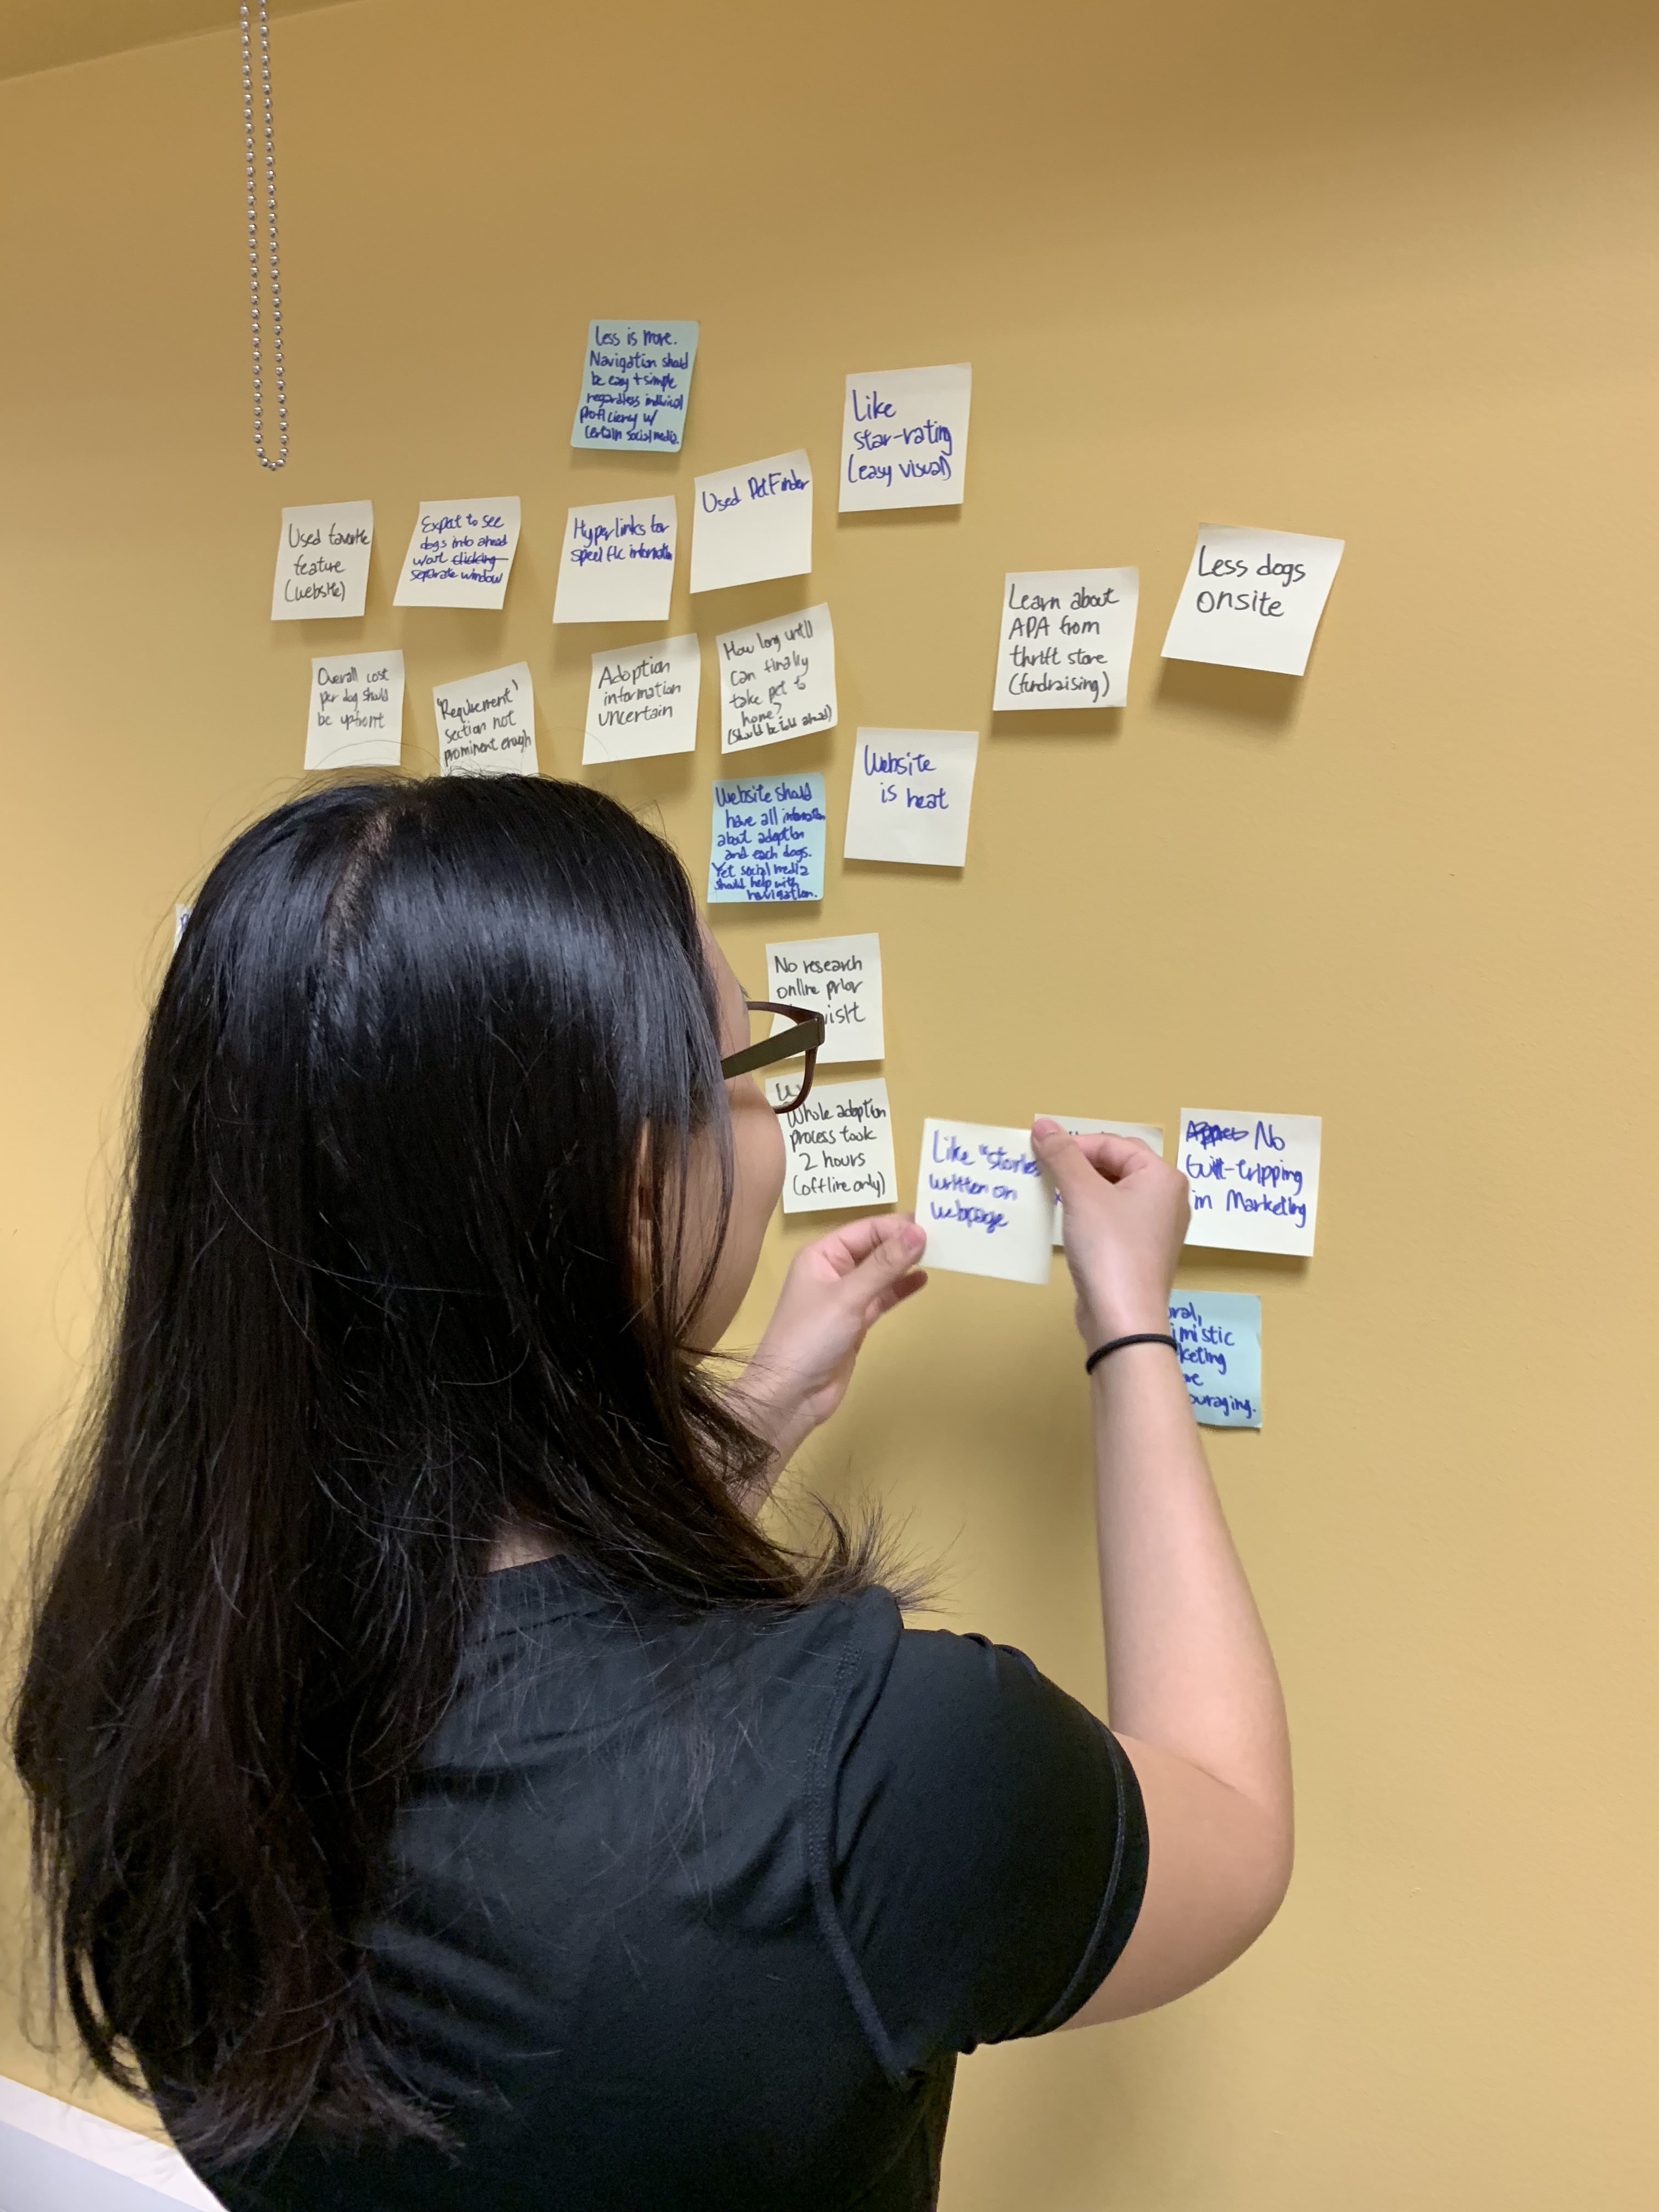 Less is more.
Navigation should
be easy + simple
regardless individual
proficiency w/
certain social media.
Like
star-rating
(easy visual)
Used favorite
feature
(website)
Expect to see
dogs info ahead
won't clicking
separate window
Hyperlinks for
specific information
Used PetFinder
Learn about
APA from
thrift store
(fundraising)
Less dogs
onsite
Overall cost
per dog should
be upfront
"Requirement"
section not
prominent enough
Adoption
information
uncertain
How long until
can finally
take pet to
home?
(should be told ahead)
Website
is neat
Website should
have all information
about adoption
and each dogs.
Yet social media
should help with
navigation.
No research
online prior
visit
Whole adoption
process took
2 hours
(offline only)
Like "stories
written on
webpage
No
Guilt-tripping
in Marketing
ral,
imistic
keting
re
ouraging.